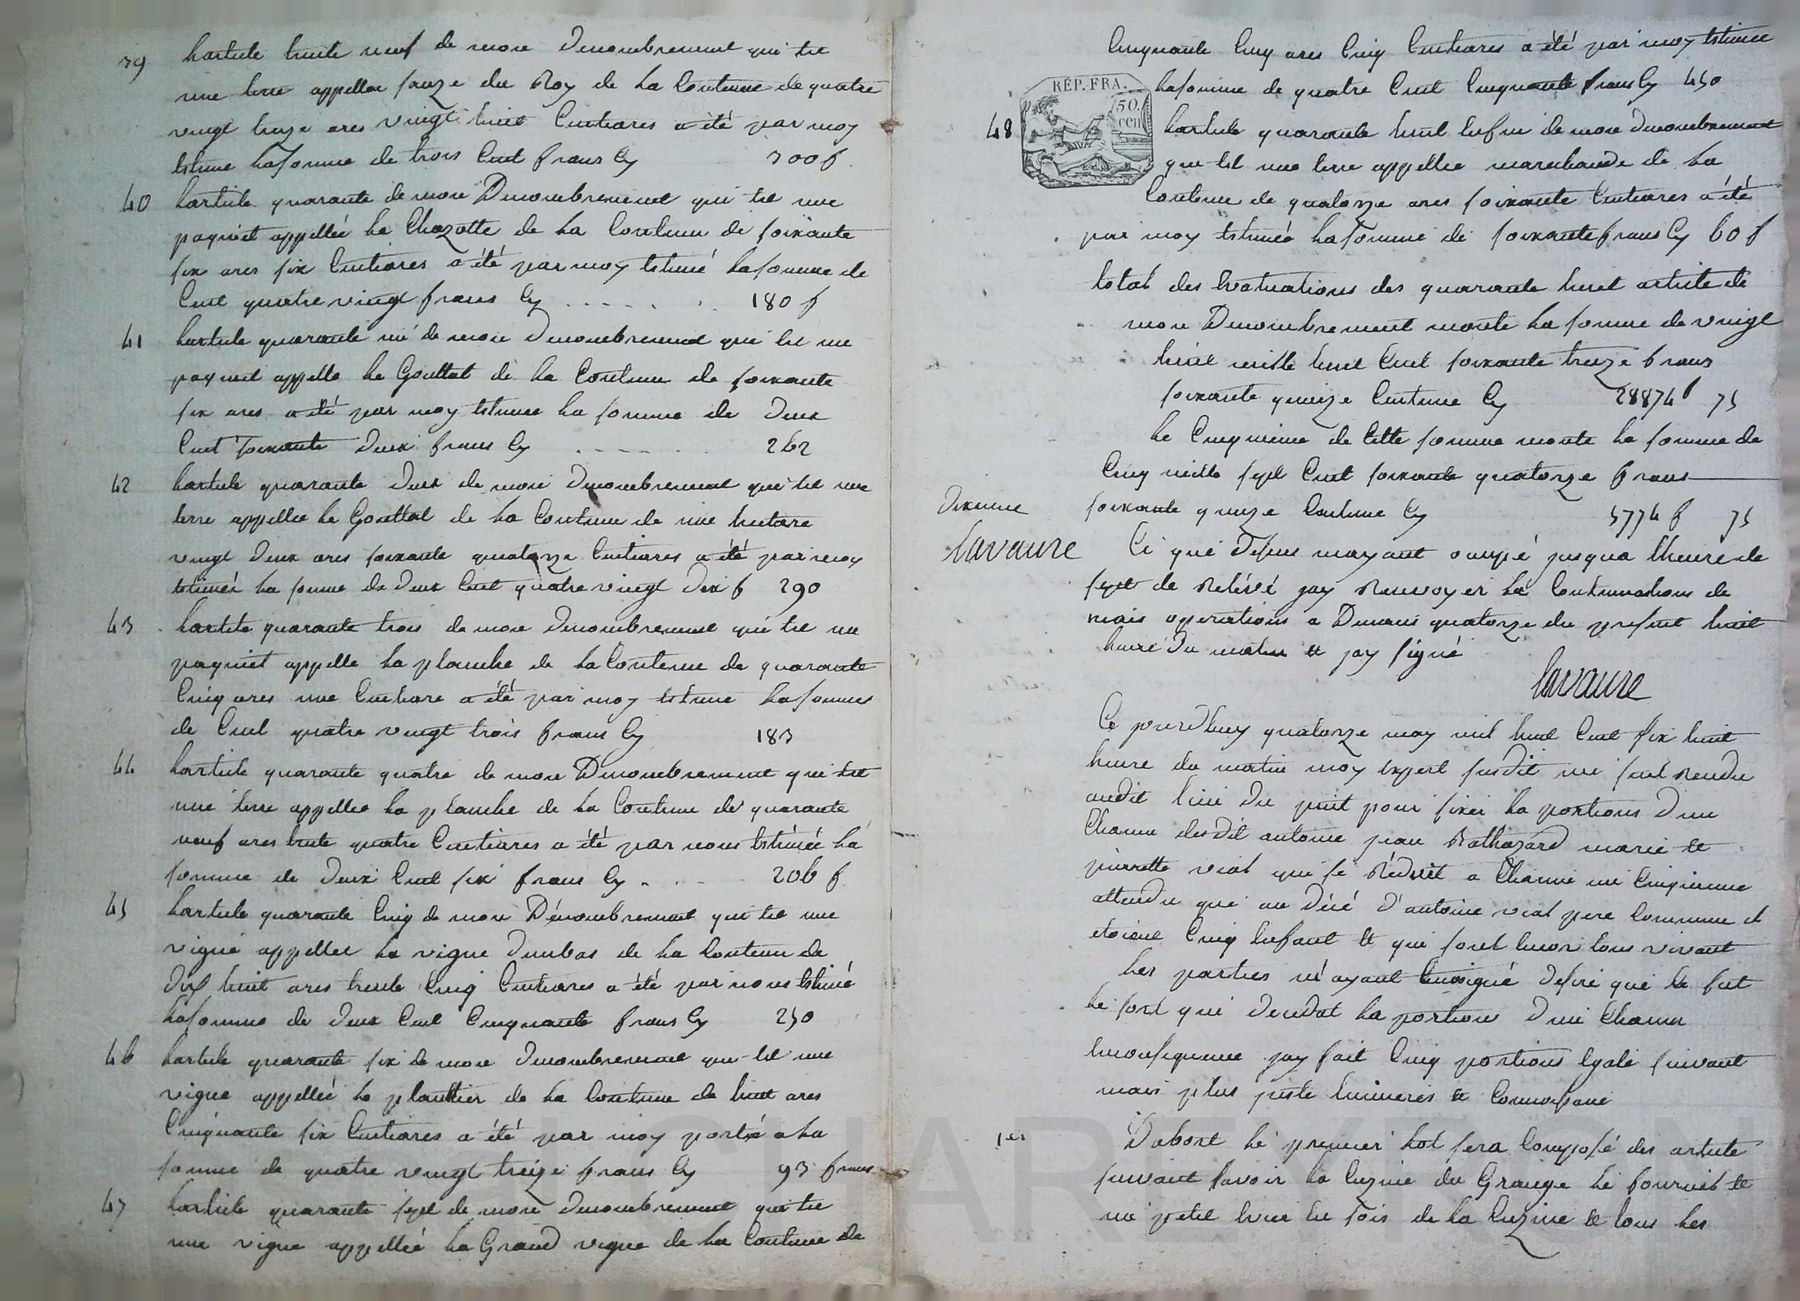 39 Larticle trente neuf de mon Denombrement qui est
une terre appellee souze du Roy de la Contenue de quatre
vingt treize ares vingt huit Centiares a été par moy
Estime la somme de trois Cent frans Cy 300 f.
40 Larticle quarante de mon Denombrement qui est une
paquiet appellée la Chazotte de la Contenue de soixante
six ares six Centiares a été par moy Estimé la somme de
Cent quatre vingt frans Cy 180 f
41 Larticle quarante un de mon Denombrement qui est un
paquiet appelle le Gouttat de la Contenue de soixante
six ares a été par moy Estimee la somme de Deux
Cent soixante Deux frans Cy 262
42 Larticle quarante Deux de mon Denombrement qui est une
terre appellee le Gouttat de la Contenue de une hectare
vingt Deux ares soixante quatorze Centiares a été par moy
Estimée la somme de Deux Cent quatre vingt Dix f 290
43 Larticle quarante trois de mon Denombrement qui est un
paquiet appelle la planche de la Contenue de quarante
Cinq ares une Centiare a été par moy Estime la somme
de Cent quatre vingt trois frans Cy 183
44 Larticle quarante quatre de mon Denombrement qui est
une terre appellee la planche de la Contenue de quarante
neuf ares trente quatre Centiares a été par nous Estimée la
somme de Deux Cent six frans Cy 206 f
45 Larticle quarante Cinq de mon Dénombrement qui est une
vigne appellee la vigne Dumbas de la Contenue de
Dix huit ares trente Cinq Centiares a été par nous Estimé
la somme de Deux Cent Cinquante frans Cy 250
46 Larticle quarante six de mon Denombrement qui est une
vigne appellée le planttier de la Contenue de huit ares
Cinquante six Centiares a été par moy porté a la
somme de quatre vingt treize frans Cy 93 frans
47 Larticle quarante sept de mon Denombrement qui est
une vigne appellée la Grand vigne de la Contenue de
Cinquante Cinq ares Cinq Centiares a été par moy Estimee
RÉP. FRA.
50. cen
la somme de quatre Cent Cinquante frans Cy 450
48 Larticle quarante huit Enfin de mon Denombrement
qui est une terre appellee marchande de la
Contenue de quatorze ares soixante Centiares a été
par moy Estimée la somme de soixante frans Cy 60 f
total des Evaluations des quarante huit article de
mon Denombrement monte la somme de vingt
huit mille huit Cent soixante treize frans
soixante quinze Centime Cy 28874 f 75
le Cinquième de Cette somme monte la somme de
Cinq mille sept Cent soixante quatorze frans
soixante quinze Centime Cy 5774 f 75
Dixieme
Lavaure
Ce que Dessus mayant occupé jusqua lheure de
sept de Relevé jay Renvoyer la Continuations de
mais operations a Demain quatorze du present huit
heure du matin et jay signé
Lavaure
Ce jourdhuy quatorze may mil huit Cent six huit
heure du matin moy Expert susdit me suis Rendu
audit lieu du puit pour fixer la portions Dune
Chaune desdit antoine jean Balthazard marie et
pierrette viat qui se Réduit a Chaune un Cinquieme
attendu que au Décé D'antoine viat pere Commune il
etoient Cinq Enfant et qui sont Encore tous vivant
Les parties m'ayant Enseigné Desiré que se fut
le sort qui Decidat la portion Dune Chaune
Enconsequence jay fait Cinq portions Egale suivant
mais plus juste lumieres et Connoissance
1er Dabort le premier Lot sera Composé des article
suivant savoir la Cuzine du Grange le fournit et
un petit hure en sois de la Cuzine et tous les